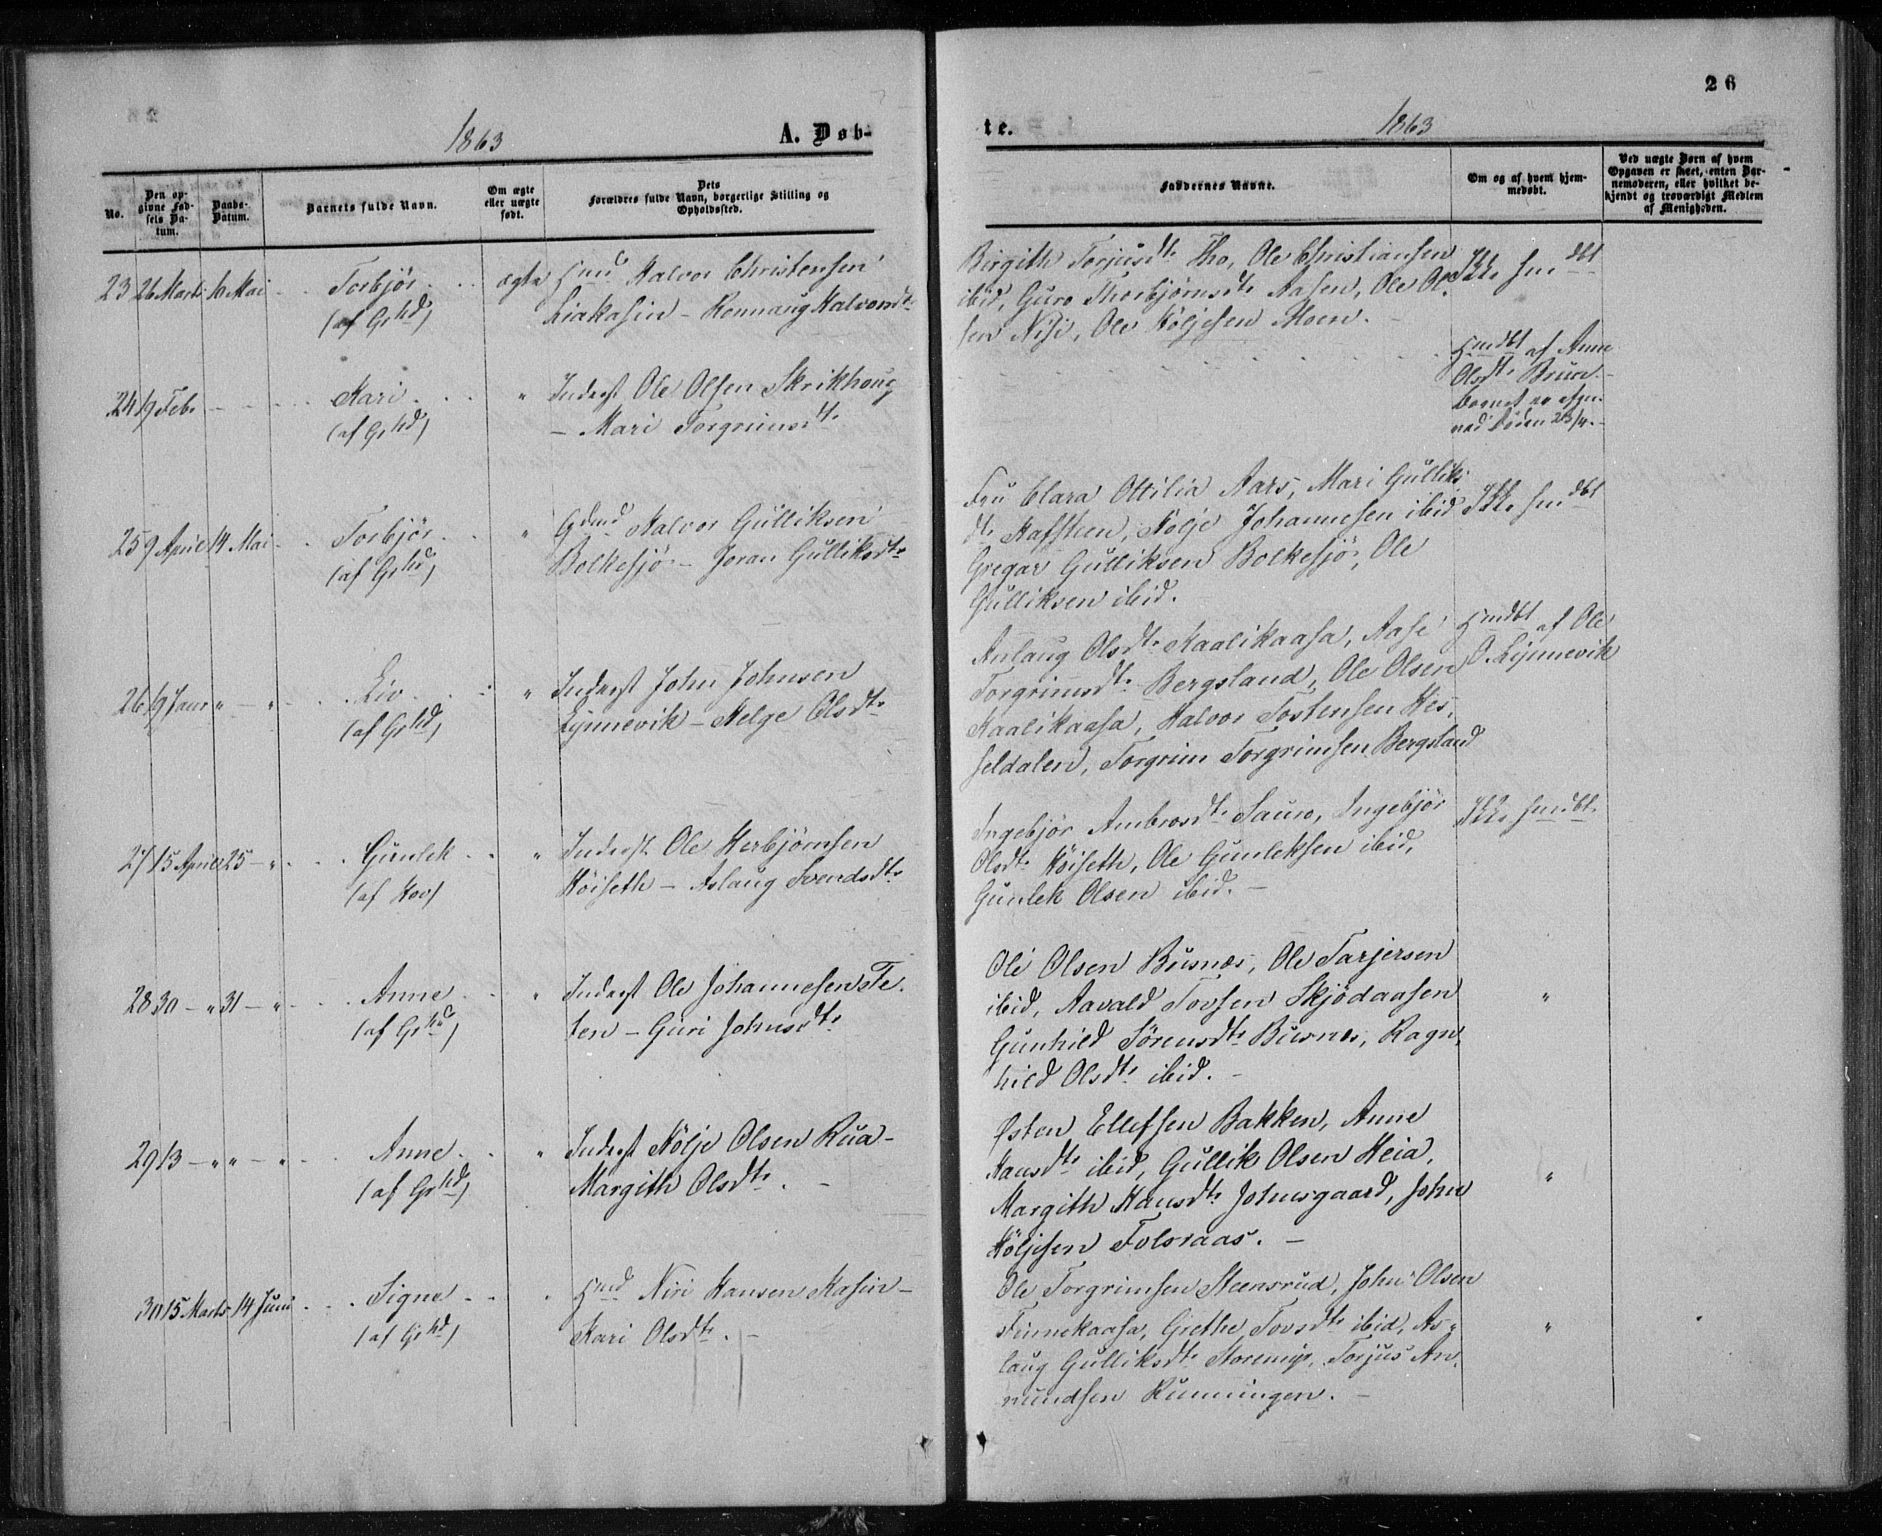 26
1863
A. Døb-
te.
1863
No.
Den op-
givne Fød-
sels Da-
tum.
Daabs-
Datum.
Barnets fulde Navn.
Om ægte
eller uægte
født.
Dets
Forældres fulde Navn, borgerlige Stilling og
Opholdssted.
Faddernes Navne.
Om og af hvem hjem-
medøbt.
Ved uægte Børn af hvem
Opgaven er skeet, enten Bar-
nemoderen, eller hvilket be-
kjendt og troværdigt Medlem
af Menigheden.
23 26 Marts 10 Mai - - Torbjør . . . ægte Hmd Halvor Christensen
(af Grhd) Liakasin - Rønnaug Halvorsdtr
Birgith Torjusdtr Tho, Ole Christiansen
ibid, Guro Thorbjørnsdtr Aasen, Ole Ol-
sen Nisi, Ole Höljesen Moen. -
Ikke hmdbt
24 19 Febr - - - - Kari . . . " Inderst Ole Olsen Skrikhoug
(af Grhd) - Mari Torgrimsdtr
Hmdbt af Anne
Olsdtr Bruu -
Barnet er afgu-
ved Døden 23/4. -
25 9 April 14 Mai - - Torbjör . . " Gdmd Halvor Gulliksen
(af Grhd) Bolkesjö - Jøran Gulliksdtr
Fru Clara Ottilia Aars, Mari Gulliks-
dtr Haffsten, Hölje Johannesen ibid
Gregar Gulliksen Bolkesjö, Ole
Gulliksen ibid.
Ikke hmdbt
26 19 Janr " - " - - Liv . . . " Inderst John Johnsen
(af Grhd) Lynnevik - Helge Olsdtr
Anlaug Olsdtr Kaalikaasa, Aase
Torgrimsdtr Bergsland, Ole Olsen
Kaalikaasa, Halvor Tostensen Hes-
seldalen, Torgrim Torgrimsen Bergsland
Hmdbt af Ole
O. Lynnevik
27 15 April 25 - " - - Gunlek . . " Inderst Ole Herbjørnsen
(af Hov) Höiseth - Aslaug Svendsdtr
Ingebjör Ambrosdtr Sauro, Ingebjör
Olsdtr Höiseth, Ole Gunleksen ibid,
Gunlek Olsen ibid. -
Ikke hmdbt.
28 30 - " 31 - " - - Anne . . " Inderst Ole Johannesen Te-
(af Grhd) ten - Guri Johnsdtr
Ole Olsen Busnes, Ole Tarjersen
ibid, Aavald Tovsen Skjödaasen
Gunhild Sørensdtr Busnes, Ragn-
hild Olsdtr ibid. -
"
29 13 - " " - " - - Anne . . " Inderst Hölje Olsen Rua -
(af Grhd) Margith Olsdtr . -
Østen Ellefsen Bakken, Anne
Hansdtr ibid, Gullik Olsen Heia,
Margith Hansdtr Johnsgaard, John
Höljesen Folsraas. -
"
30 15 Marts 14 Juni - - Signe - . . " Hmd Niri Hansen Kasin -
(af Grhd) Kari Olsdtr . -
Ole Torgrimsen Steensrud, John Olsen
Finnekaasa, Grethe Tovsdtr ibid, As-
laug Gulliksdtr Storemyr, Torjus Am-
mundsen Rünningen. -
"